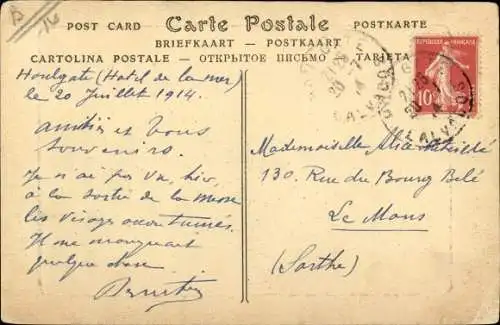 POST CARD Carte Postale POSTKARTE
BRIEFKAART - POSTKAART
CARTOLINA POSTALE - ОТКРЫТОЕ ПИСЬМО - TARJETA
REPUBLIQUE FRANÇAISE
10
CALVADOS
Houlgate (Hotel de la mer)
le 20 Juillet 1914.
amitiés et bons
souvenirs.
Je n'ai pas vu, hier,
à la sortie de la messe
les visages accoutumés.
Il me manquait
quelque chose
Mademoiselle Alice
130 Rue du Bourg Belé
Le Mans
(Sarthe)